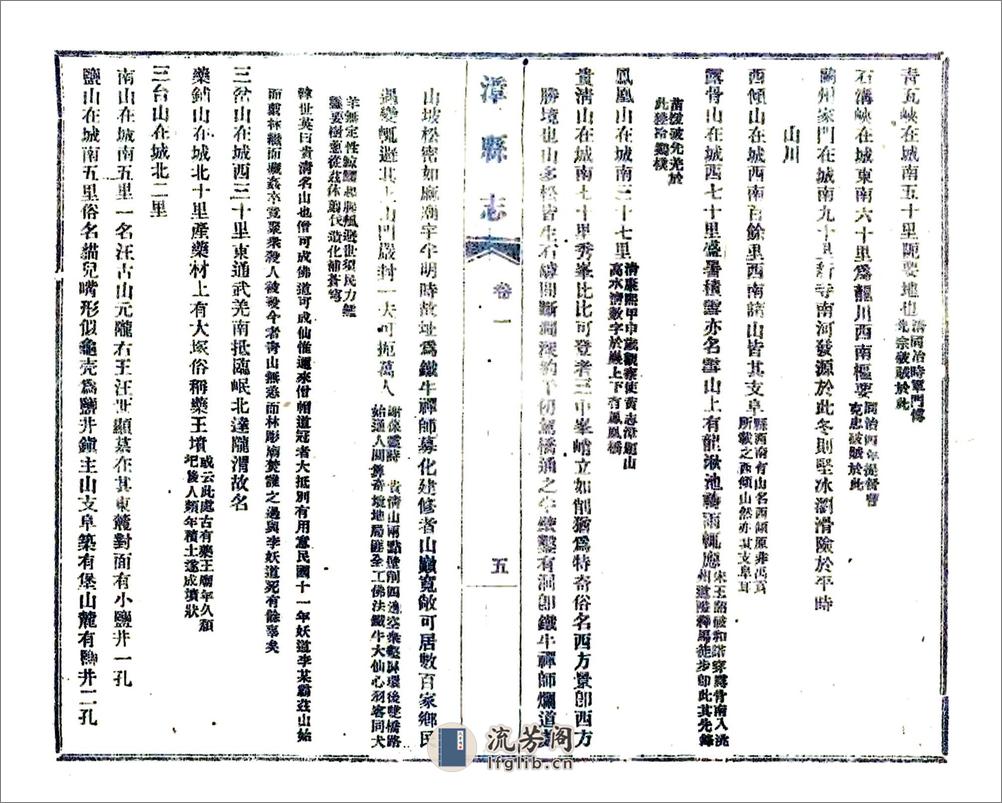 青瓦峽在城南五十里扼要地也清同治時軍門傅先宗破賊於此
石溝峽在城東南六十里爲龍川西南樞要同治四年提督曹克忠破賊於此
蘭州家門在城南九十里行寺南河發源於此冬則堅冰瀏滑險於平時
山川
西傾山在城西南百餘里西南諸山皆其支阜縣西南有山名西傾原非禹貢所載之西傾山然亦其支阜耳
露骨山在城西七十里盛暑積雪亦名雪山上有龍湫池禱雨輒應宋王韶破和諾穿露骨南入洮州道隘釋馬徒步卽此其先鋒
苗授破先羌於此後冷雞樸
鳳凰山在城南三十七里清康熙甲申歲觀察使黃志漳題山高水淸數字於巖上下有鳳凰橋
貴淸山在城南七十里秀峯比比可登者三中峯峭立如削猶爲特奇俗名西方景卽西方
勝境也山多松皆生石罅間斷澗深約千仞駕橋通之半壁鑿有洞卽鐵牛禪師爛道
漳縣志
卷一
五
山坡松密如廠廟宇牛明時故址爲鐵牛禪師募化建修者山巓寬敞可居數百家鄉民
遇變輒避其上山門嚴封一夫可扼萬人
始通人間算奇境地局全工佛法鐵牛大仙心羽客同犬
羊無定性避世須民力
要樹蔥從茲休翳伏造化補蒼穹
韓世英曰貴清名山也僧可成佛道可成仙惟邇來僧帽道冠者大抵別有用意民國十一年妖道李某霸茲山始
而剪林繼而藏姦卒竟聚衆殺人被殺今者靑山無恙而林彫廟焚誰之過與李妖道死有餘辜矣
三岔山在城西三十里東通武羌南抵臨岷北達隴渭故名
藥舖山在城北十里產藥材上有大塚俗稱藥王墳或云此處古有藥王廟年久頹圮後人頻年積土遂成墳狀
三台山在城北二里
南山在城南五里一名汪古山元隴右王汪世顯墓在其東麓對面有小鹽井一孔
鹽山在城南五里俗名貓兒嘴形似龜壳爲鹽井鎭主山支阜築有堡山麓有鹽井二孔
流芳阁
lfglib.cn